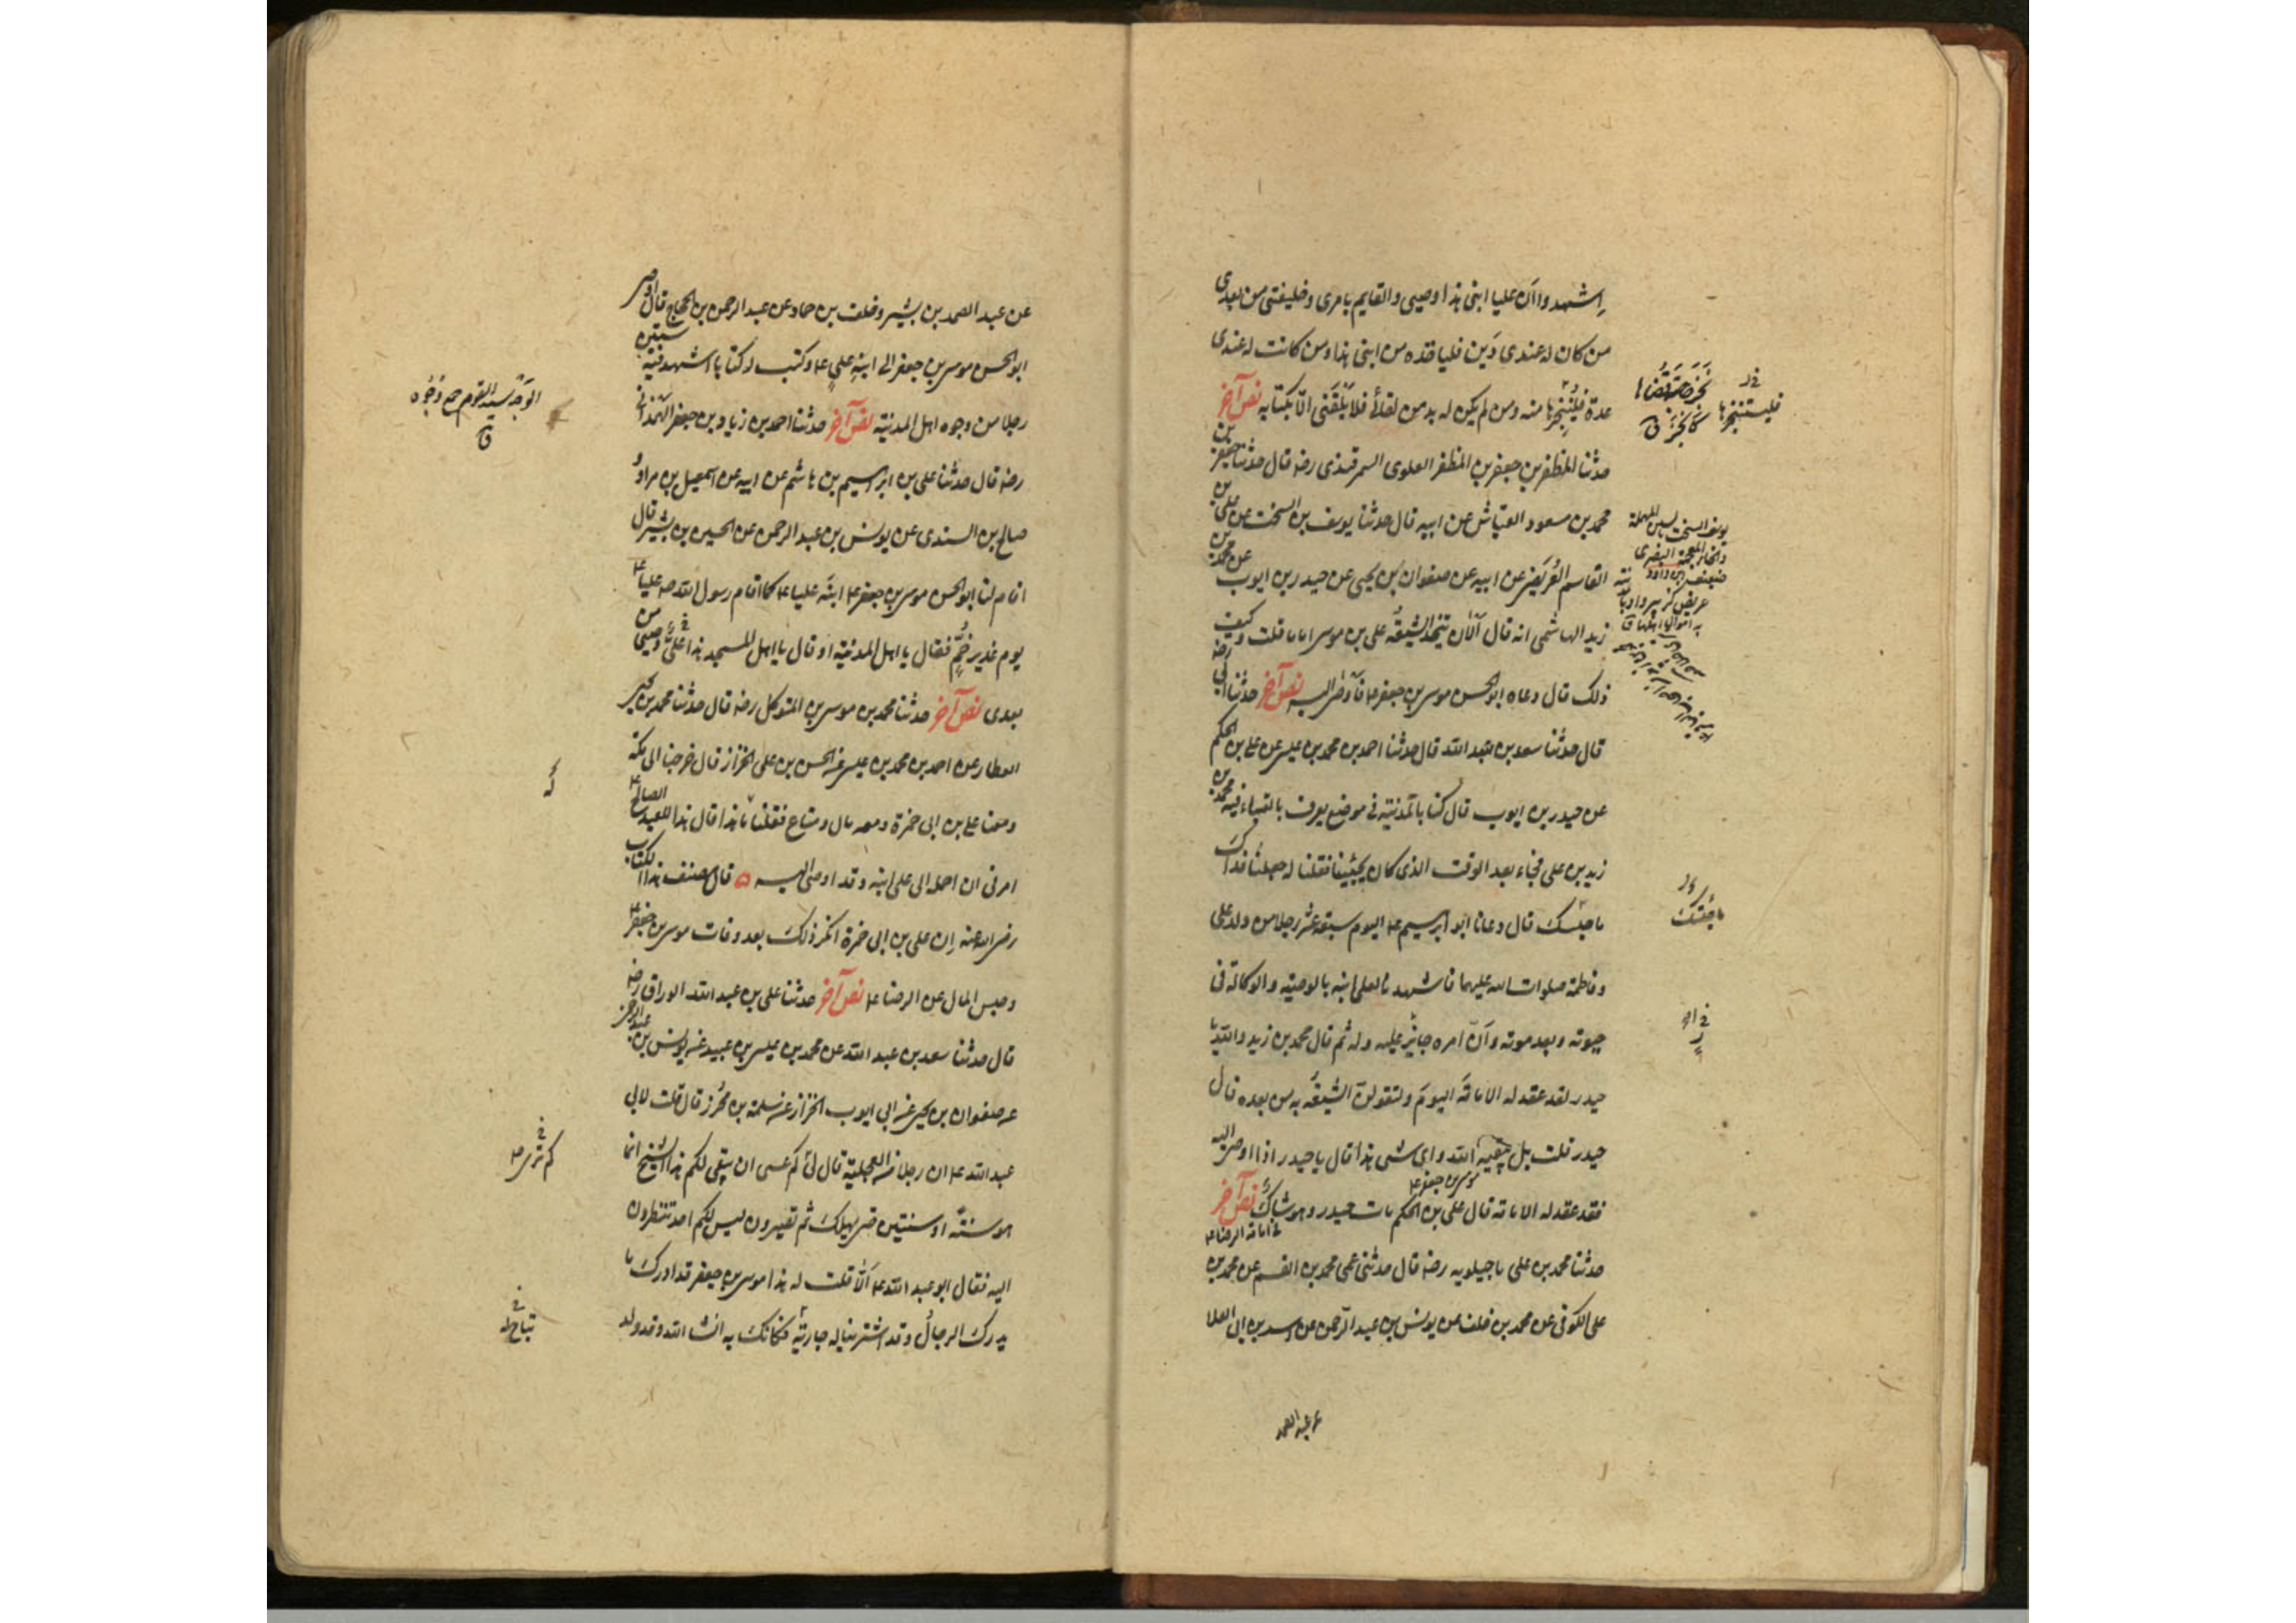 اشهدوا ان عليا ابنى هذا وصيى والقايم بامرى وخليفتى من بعدى
من كان له عندى دين فليأخذه من ابنى هذا ومن كانت له عندى
عدة فلينجزها منه ومن لم يكن له بد من لقائى فلا يلقنى الا بكتابه نص آخر
حدثنا المظفر بن جعفر بن المظفر العلوى السمرقندى رضه قال حدثنا جعفر بن
محمد بن مسعود العياشى عن ابيه قال حدثنا يوسف بن السخت عن على بن
القاسم العريضى عن ابيه عن صفوان بن يحيى عن حيدر بن ايوب عن محمد بن
زيد الهاشمى انه قال الآن تتخذ الشيعة على بن موسى اماما قلت وكيف
ذلك قال دعاه ابو الحسن موسى بن جعفر ع فاوصى اليه نص آخر حدثنا ابى رضه
قال حدثنا سعد بن عبد الله قال حدثنا احمد بن محمد بن عيسى عن على بن الحكم
عن حيدر بن ايوب قال كنا بالمدينة فى موضع يعرف بالقباء فيه محمد بن
زيد بن على فجاء بعد الوقت الذى كان يجيئنا فقلنا له جعلنا فداك
ما حبسك قال دعانا ابو ابرهيم ع اليوم سبعة عشر رجلا من ولد على
وفاطمة صلوات الله عليهما فاشهدنا لعلى ابنه بالوصية والوكالة فى
حيوته وبعد موته وان امره جايز عليه وله ثم قال محمد بن زيد والله يا
حيدر لقد عقد له الامامة اليوم ولتقولن الشيعة به من بعده قال
حيدر قلت بل يبقيه الله واى شى هذا قال يا حيدر اذا اوصى اليه
موسى بن جعفر ع
فقد عقد له الامامة قال على بن الحكم مات حيدر وهو شاك نص آخر
فى امامة الرضا ع
حدثنا محمد بن على ماجيلويه رضه قال حدثنى عمى محمد بن ابى القسم عن محمد بن
على الكوفى عن محمد بن خلف عن يونس بن عبد الرحمن عن اسد بن ابى العلا
عن عبد الصمد
فلیستنجزها
ما حبسك
عن عبد الصمد بن بشير وخلف بن حماد عن عبد الرحمن بن الحجاج قال اوصى
ابو الحسن موسى بن جعفر الى ابنه على ع وكتب له كتابا اشهد فيه ستين
رجلا من وجوه اهل المدينة نص آخر حدثنا احمد بن زياد بن جعفر الهمدانى
رضه قال حدثنا على بن ابرهيم بن هاشم عن ابيه عن اسمعيل بن مرار و
صالح بن السندى عن يونس بن عبد الرحمن عن الحسين بن بشير قال
اقام لنا ابو الحسن موسى بن جعفر ع ابنه عليا ع كما اقام رسول الله ص عليا ع
يوم غدير خم فقال يا اهل المدينة او قال يا اهل المسجد هذا على وصيى من
بعدى نص آخر حدثنا محمد بن موسى بن المتوكل رضه قال حدثنا محمد بن يحيى
العطار عن احمد بن محمد بن عيسى عن الحسن بن على الخزاز قال خرجنا الى مكة
ومعنا على بن ابى حمزة ومعه مال ومتاع فقلنا ما هذا قال هذا للعبد الصالح ع
امرنى ان احمله الى على ابنه وقد اوصى اليه قال مصنف هذا الكتاب
رضى الله عنه ان على بن ابى حمزة انكر ذلك بعد وفات موسى بن جعفر ع
وحبس المال عن الرضا ع نص آخر حدثنا على بن عبد الله الوراق رضه
قال حدثنا سعد بن عبد الله عن محمد بن عيسى بن عبيد عن يونس بن عبد الرحمن
عن صفوان بن يحيى عن ابى ايوب الخزاز عن سلمة بن محرز قال قلت لابى
عبد الله ع ان رجلا من العجلية قال لى كم عسى ان يبقى لكم هذا الشيخ انما
هو سنة او سنتين حتى يهلك ثم تصيرون ليس لكم احد تنتظرون
اليه فقال ابو عبد الله ع الا قلت له هذا موسى بن جعفر قد ادرك ما
يدرك الرجال وقد اشترينا له جارية فكانك به انشا الله وقد ولد
الوجه سيد القوم ج وجوه
ق